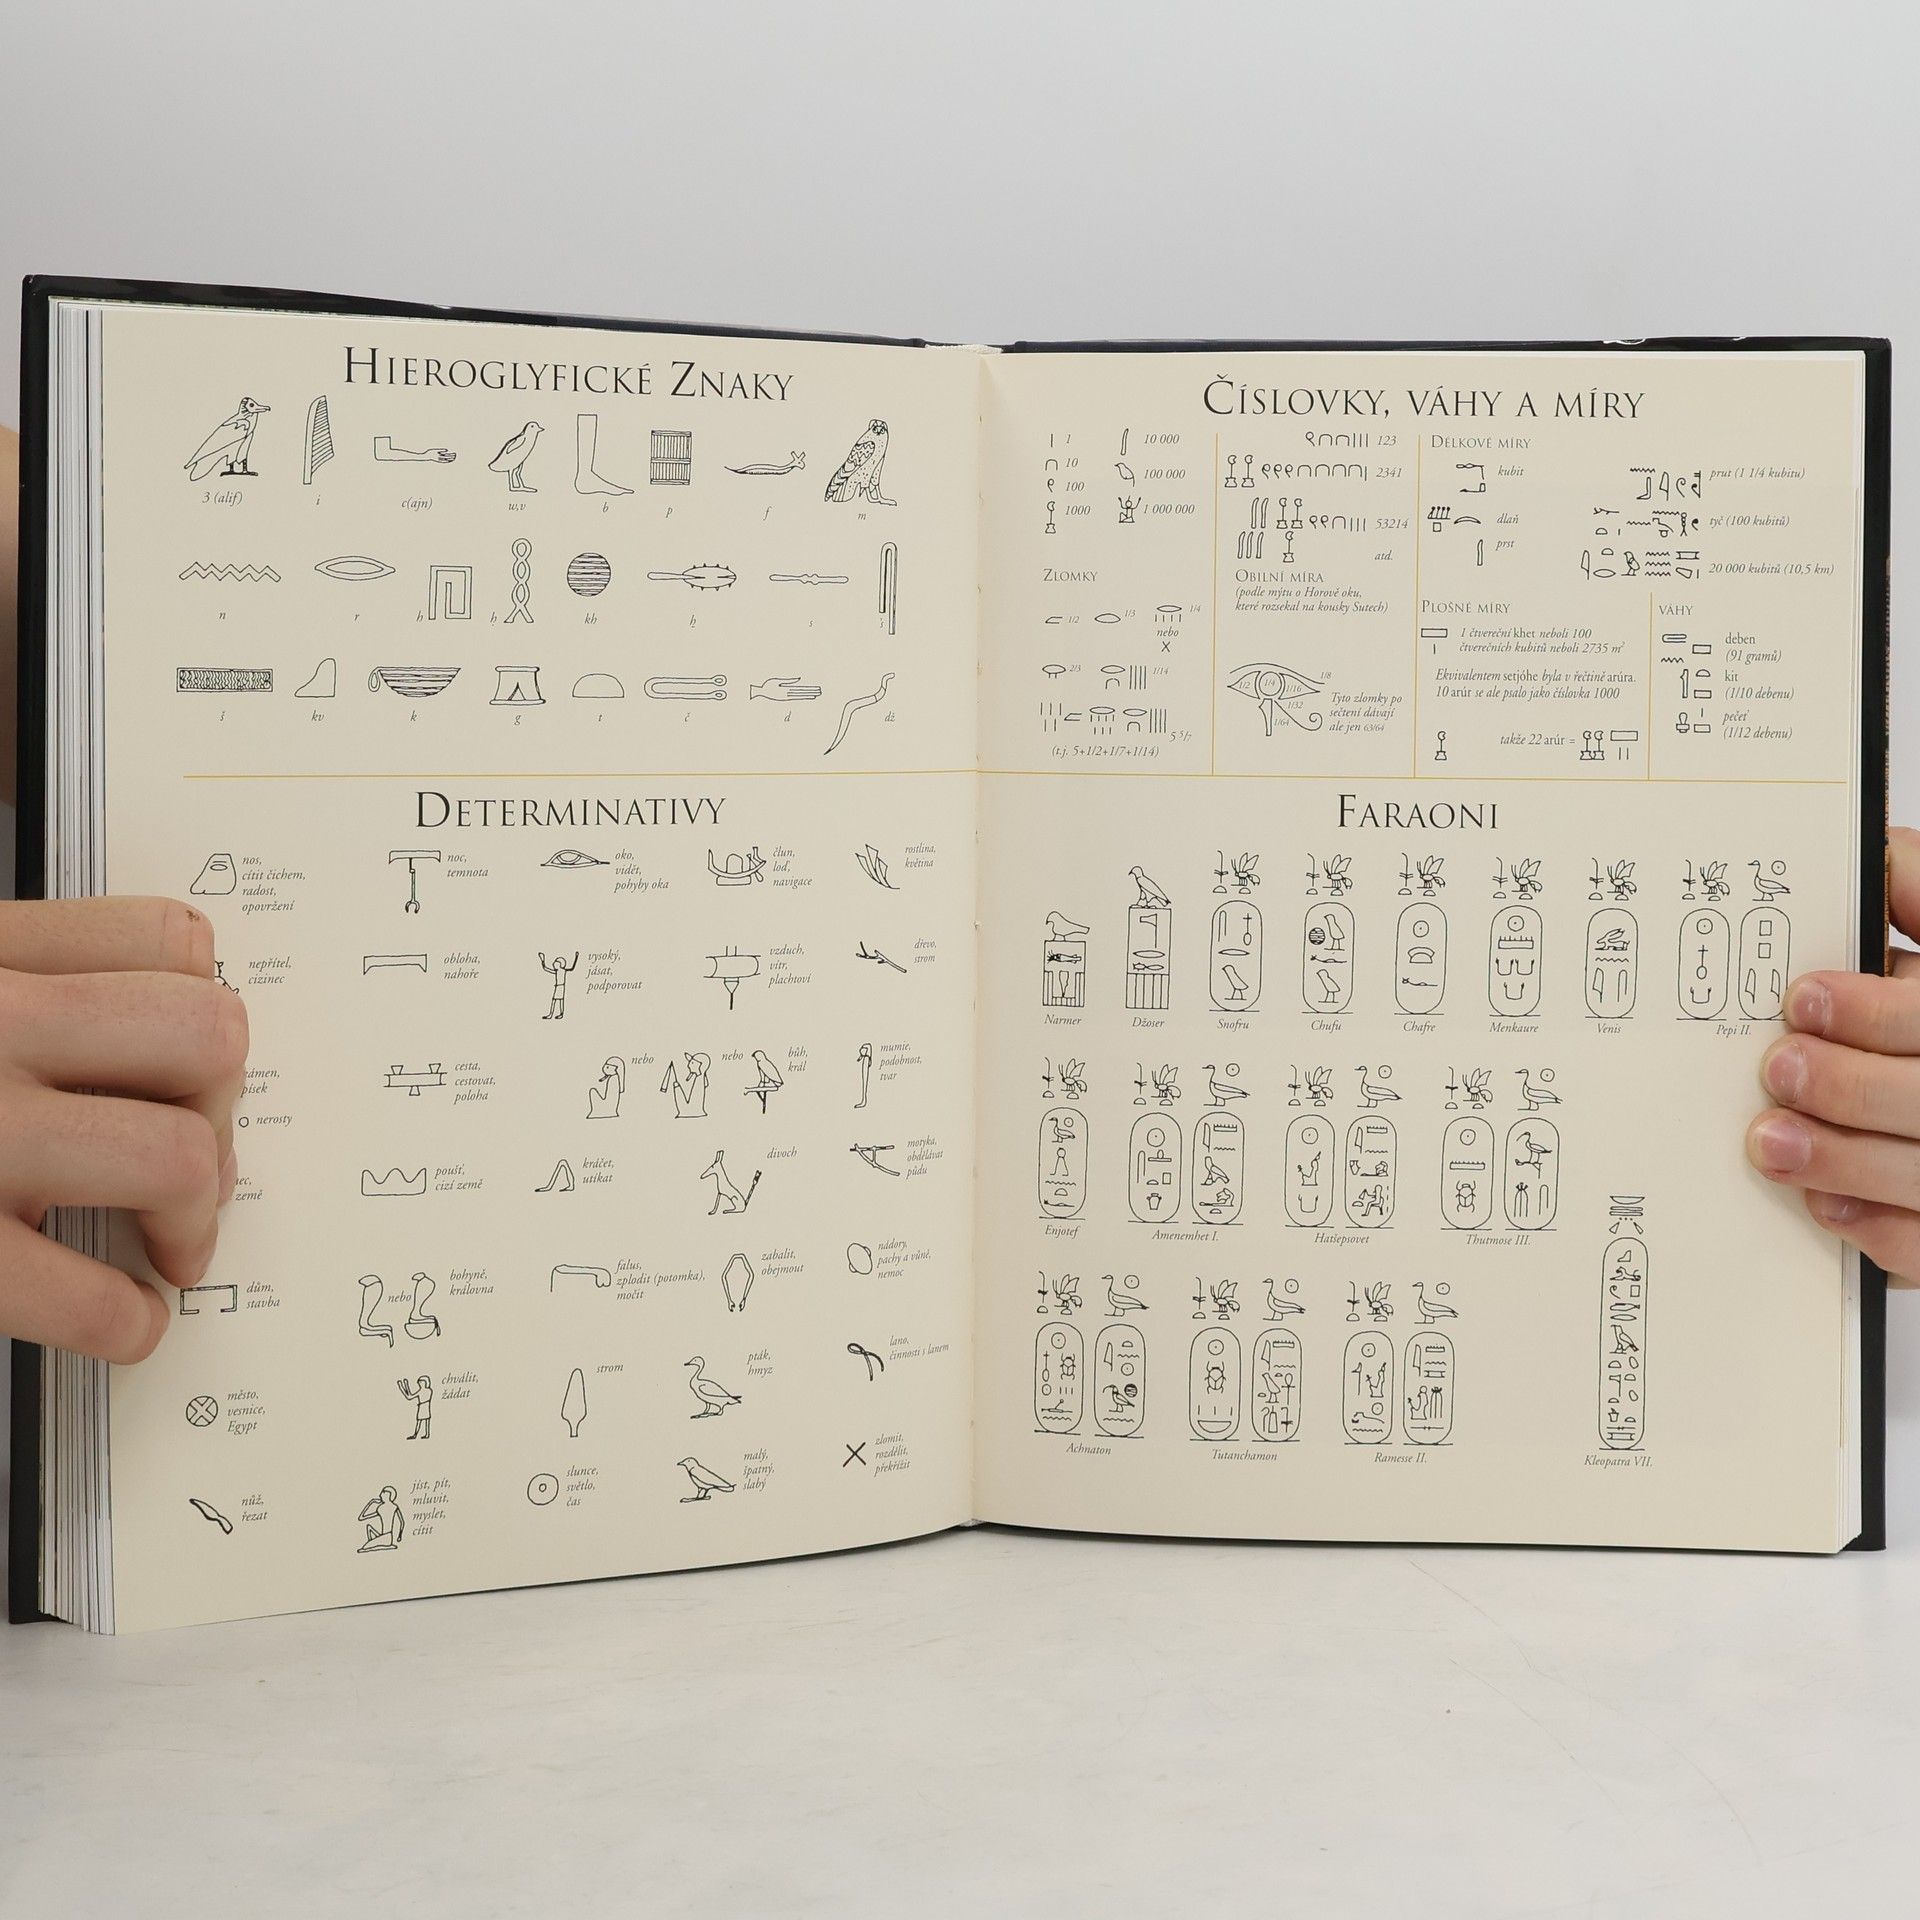 HIEROGLYFICKÉ ZNAKY
3 (alif)
i
c(ajn)
w,v
b
p
f
m
n
r
h
ḥ
kh
ẖ
s
š
kv
k
g
t
č
d
dž
DETERMINATIVY
nos,
cítit čichem,
radost,
opovržení
noc,
temnota
oko,
vidět,
pohyby oka
člun,
loď,
navigace
rostlina,
květina
nepřítel,
cizinec
obloha,
nahoře
vysoký,
jásat,
podporovat
vzduch,
vítr,
plachtoví
dřevo,
strom
písek
nerosty
cesta,
cestovat,
poloha
nebo
nebo
bůh,
král
mumie,
podobnost,
tvar
země
poušť,
cizí země
kráčet,
utíkat
divoch
motyka,
obdělávat
půdu
dům,
stavba
nebo
bohyně,
královna
falus,
zplodit (potomka),
močit
zabalit,
obejmout
nádory,
pachy a vůně,
nemoc
město,
vesnice,
Egypt
chválit,
žádat
strom
pták,
hmyz
lano,
činnosti s lanem
nůž,
řezat
jíst, pít,
mluvit,
myslet,
cítit
slunce,
světlo,
čas
malý,
špatný,
slabý
zlomit,
rozdělit,
překřížit
ČÍSLOVKY, VÁHY A MÍRY
1
10
100
1000
10 000
100 000
1 000 000
ZLOMKY
1/2
1/3
1/4
nebo
X
2/3
1/14
5 5/7
(t.j. 5+1/2+1/7+1/14)
123
2341
53214
atd.
OBILNÍ MÍRA
(podle mýtu o Horově oku,
které rozsekal na kousky Sutech)
1/2
1/4
1/16
1/8
1/32
1/64
Tyto zlomky po
sečtení dávají
ale jen 63/64
DÉLKOVÉ MÍRY
kubit
dlaň
prst
prut (1 1/4 kubitu)
tyč (100 kubitů)
20 000 kubitů (10,5 km)
PLOŠNÉ MÍRY
1 čtvereční khet neboli 100
čtverečních kubitů neboli 2735 m²
Ekvivalentem setjóhe byla v řečtině arúra.
10 arúr se ale psalo jako číslovka 1000
takže 22 arúr =
VÁHY
deben
(91 gramů)
kit
(1/10 debenu)
pečeť
(1/12 debenu)
FARAONI
Narmer
Džoser
Snofru
Chufu
Chafre
Menkaure
Venis
Pepi II.
Enjotef
Amenemhet I.
Hatšepsovet
Thutmose III.
Achnaton
Tutanchamon
Ramesse II.
Kleopatra VII.